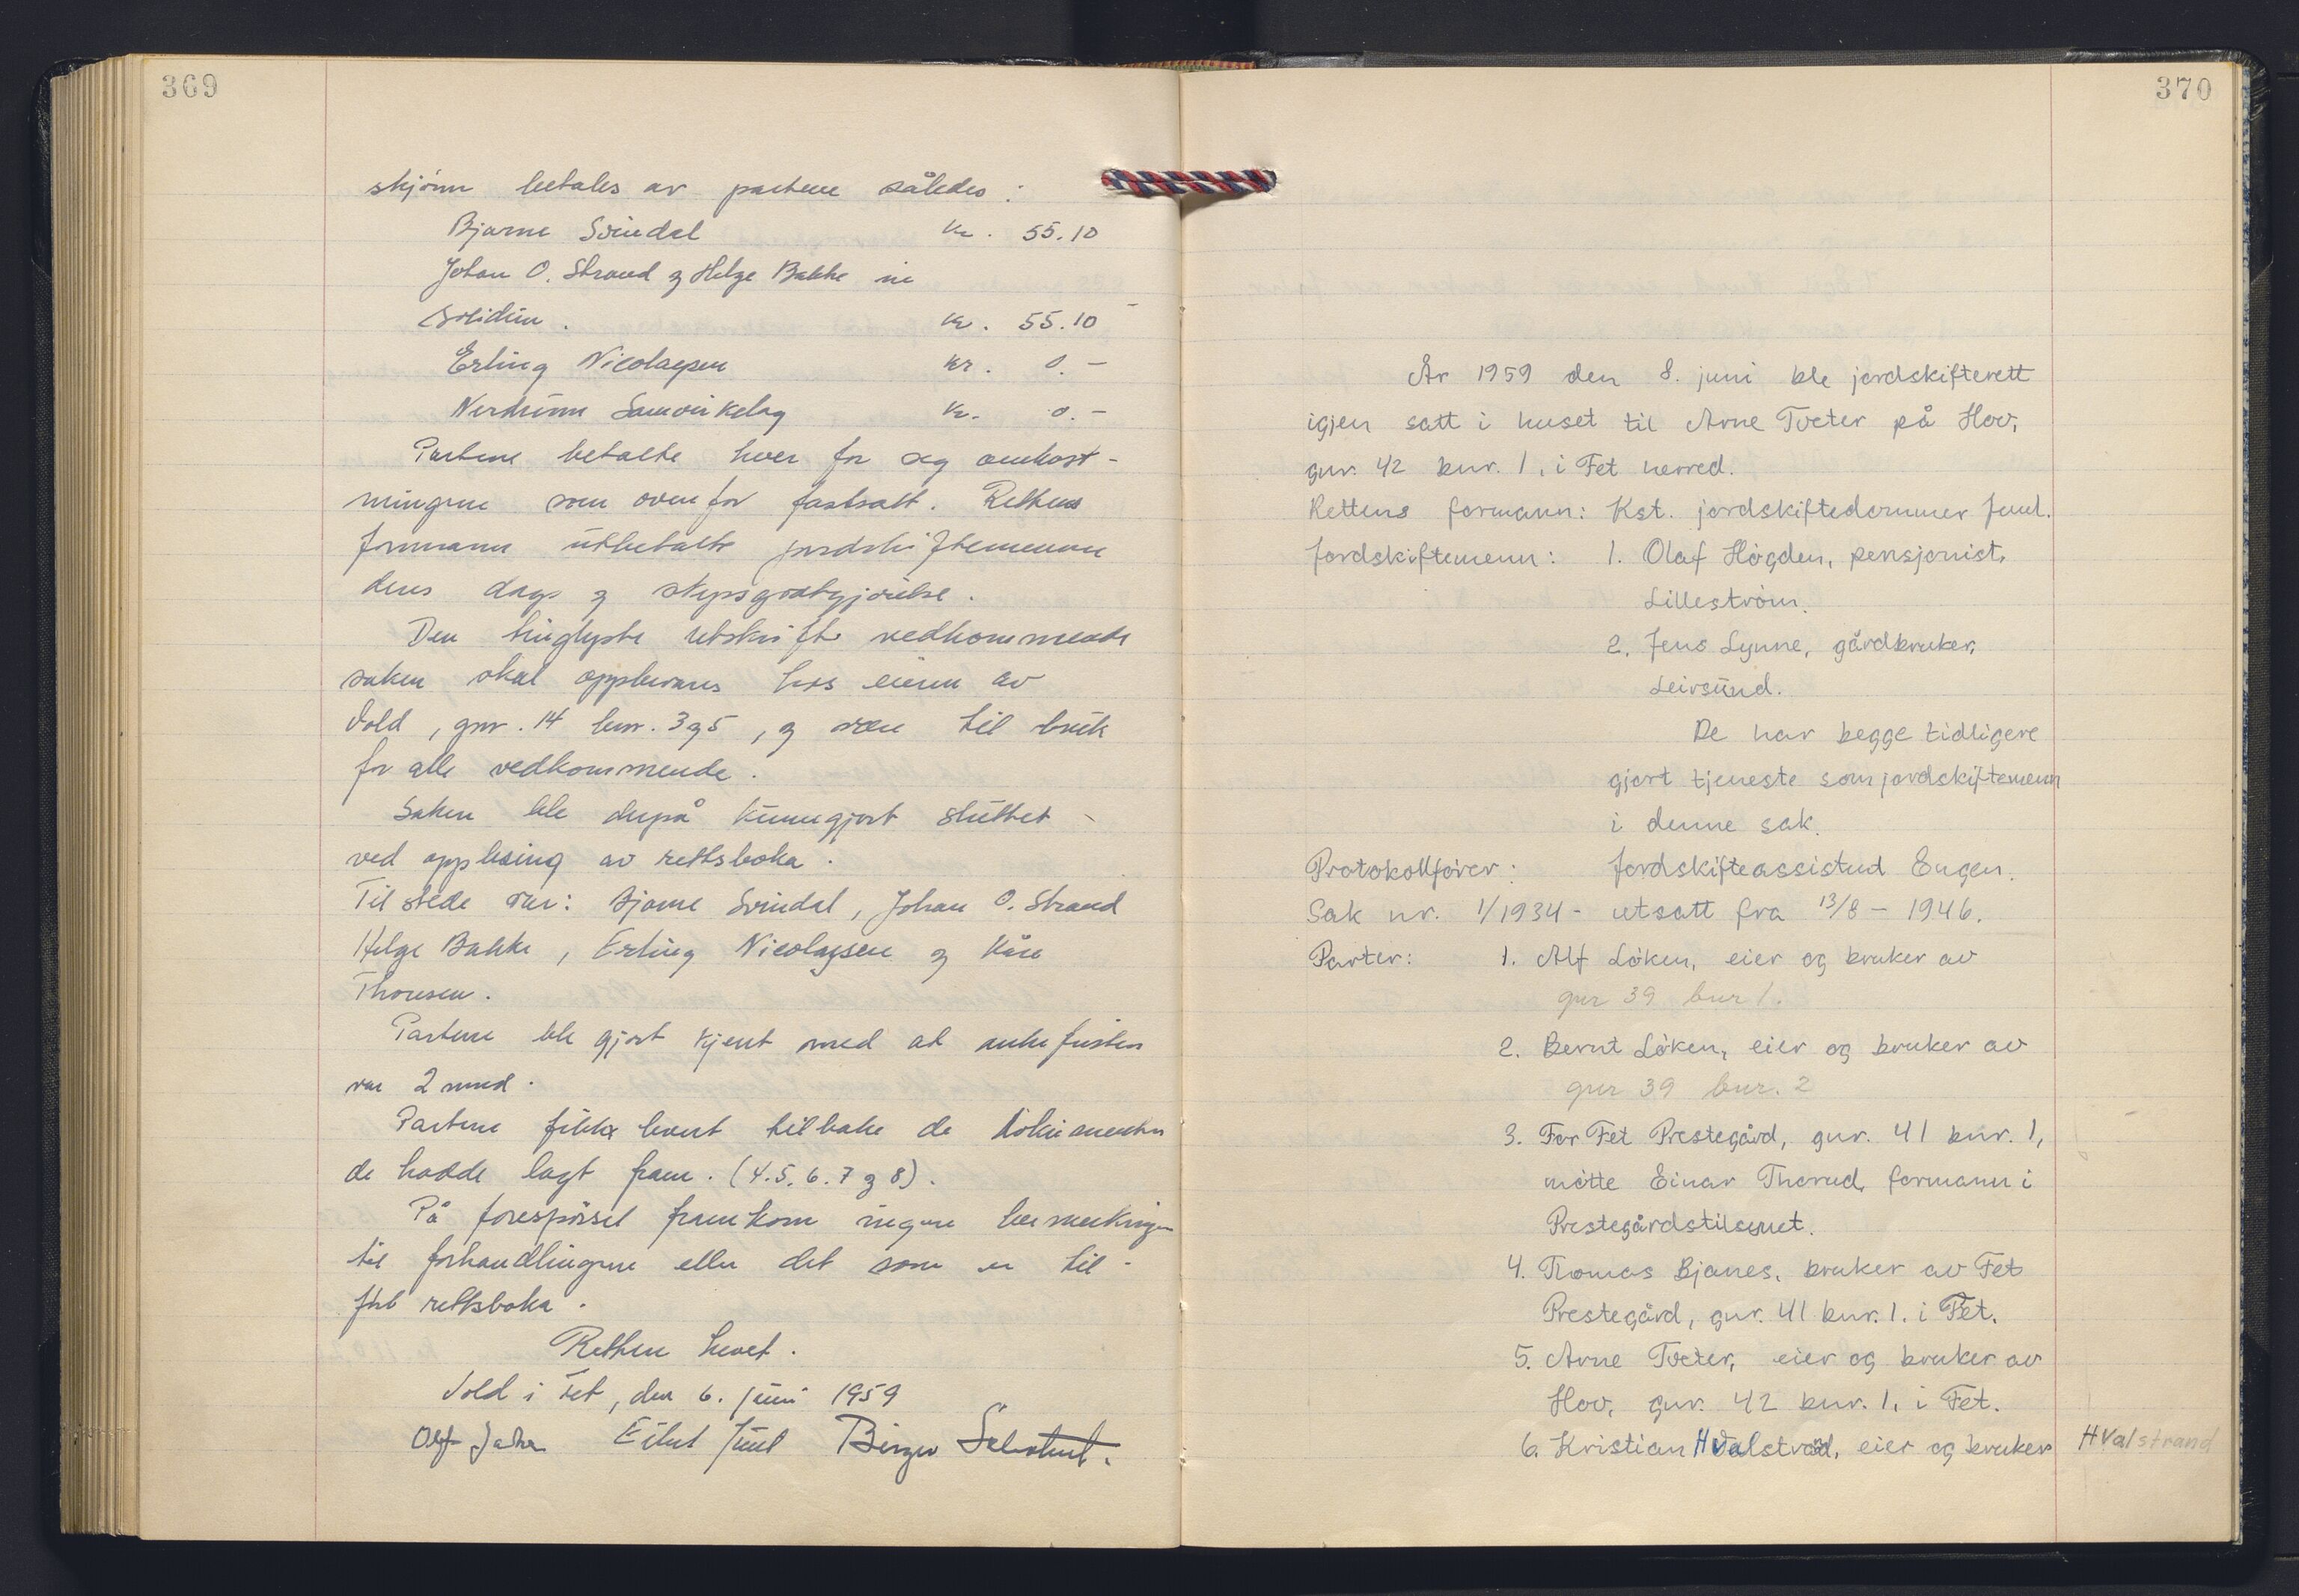 369
skjønn betales av partene således:
Bjarne Svindal kr. 55.10
Johan O. Strand og Helge Bakke in
solidum. kr. 55.10
Erling Nicolaysen kr. 0.-
Nerdrum Samvirkelag kr. 0.-
Partene betalte hver for seg omkost-
ningene som ovenfor fastsatt. Rettens
formann utbetalte jordskiftemennene
deres dags og skyssgodtgjørelse.
Den tinglyste utskrift vedkommende
saken skal oppbevares hos eieren av
Vold, gnr. 14 bnr. 3 og 5, og være til bruk
for alle vedkommende.
Saken ble derpå kunngjort sluttet
ved opplesing av rettsboka.
Til stede var: Bjarne Svindal, Johan O. Strand
Helge Bakke, Erling Nicolaysen og Kåre
Thoresen.
Partene ble gjort kjent med at ankefristen
var 2 mnd.
Partene fikk levert tilbake de dokumenter
de hadde lagt fram. (4. 5. 6. 7 og 8).
På forespørsel framkom ingen bemerkninger
til forhandlingene eller det som er til-
ført rettsboka.
Retten hevet.
Vold i Fet, den 6. juni 1959
Olf Eilut Juul Birger
370
År 1959 den 8. juni ble jordskifterett
igjen satt i huset til Arne Tveter på Hov,
gnr. 42 bnr. 1, i Fet herred.
Rettens formann: Kst. jordskiftedommer Juul.
Jordskiftemenn: 1. Olaf Høgden, pensjonist,
Lillestrøm.
2. Jens Lynne, gårdbruker,
Leirsund.
De har begge tidligere
gjort tjeneste som jordskiftemenn
i denne sak.
Protokollfører: Jordskifteassistent Engen.
Sak nr. 1/1934 - utsatt fra 13/8 - 1946.
Parter: 1. Alf Løken, eier og bruker av
gnr 39 bnr 1.
2. Bernt Løken, eier og bruker av
gnr 39 bnr. 2
3. For Fet Prestegård, gnr. 41 bnr. 1,
møtte Einar Thorud, formann i
Prestegårdstilsynet.
4. Thomas Bjanes, bruker av Fet
Prestegård, gnr. 41 bnr. 1. i Fet.
5. Arne Tveter, eier og bruker av
Hov, gnr. 42 bnr. 1, i Fet.
6. Kristian HValstrand, eier og bruker
HValstrand